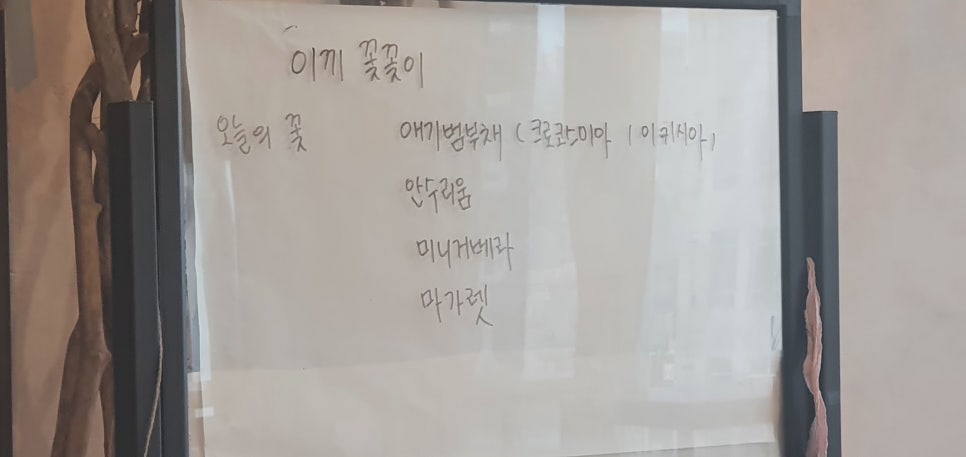 이끼 꽃꽂이
오늘의 꽃 애기범부채 (크로코스미아 / 이키시아)
안수리움
미니거베라
마가렛